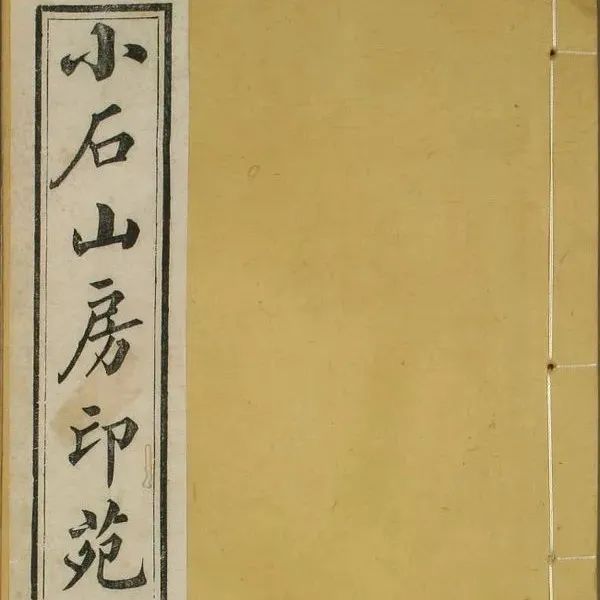 小石山房印苑